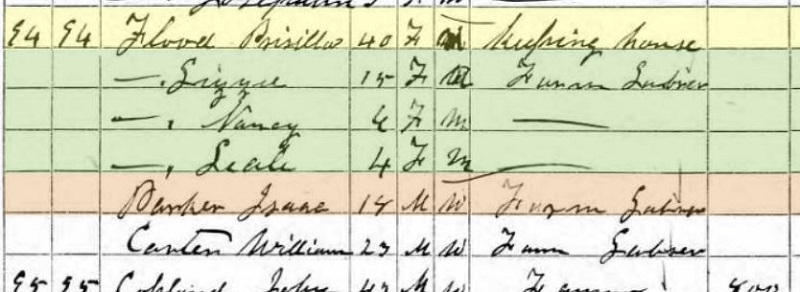 94 94 Flood Prisilla 40 F M Keeping house
—, Lizzie 15 F M Farm Laborer
—, Nancy 6 F M —
—, Leale 4 F M —
Parker Isaac 18 M W Farm Laborer
Carter William 23 M W Farm Laborer
95 95 Copland John 42 M W Farmer 800